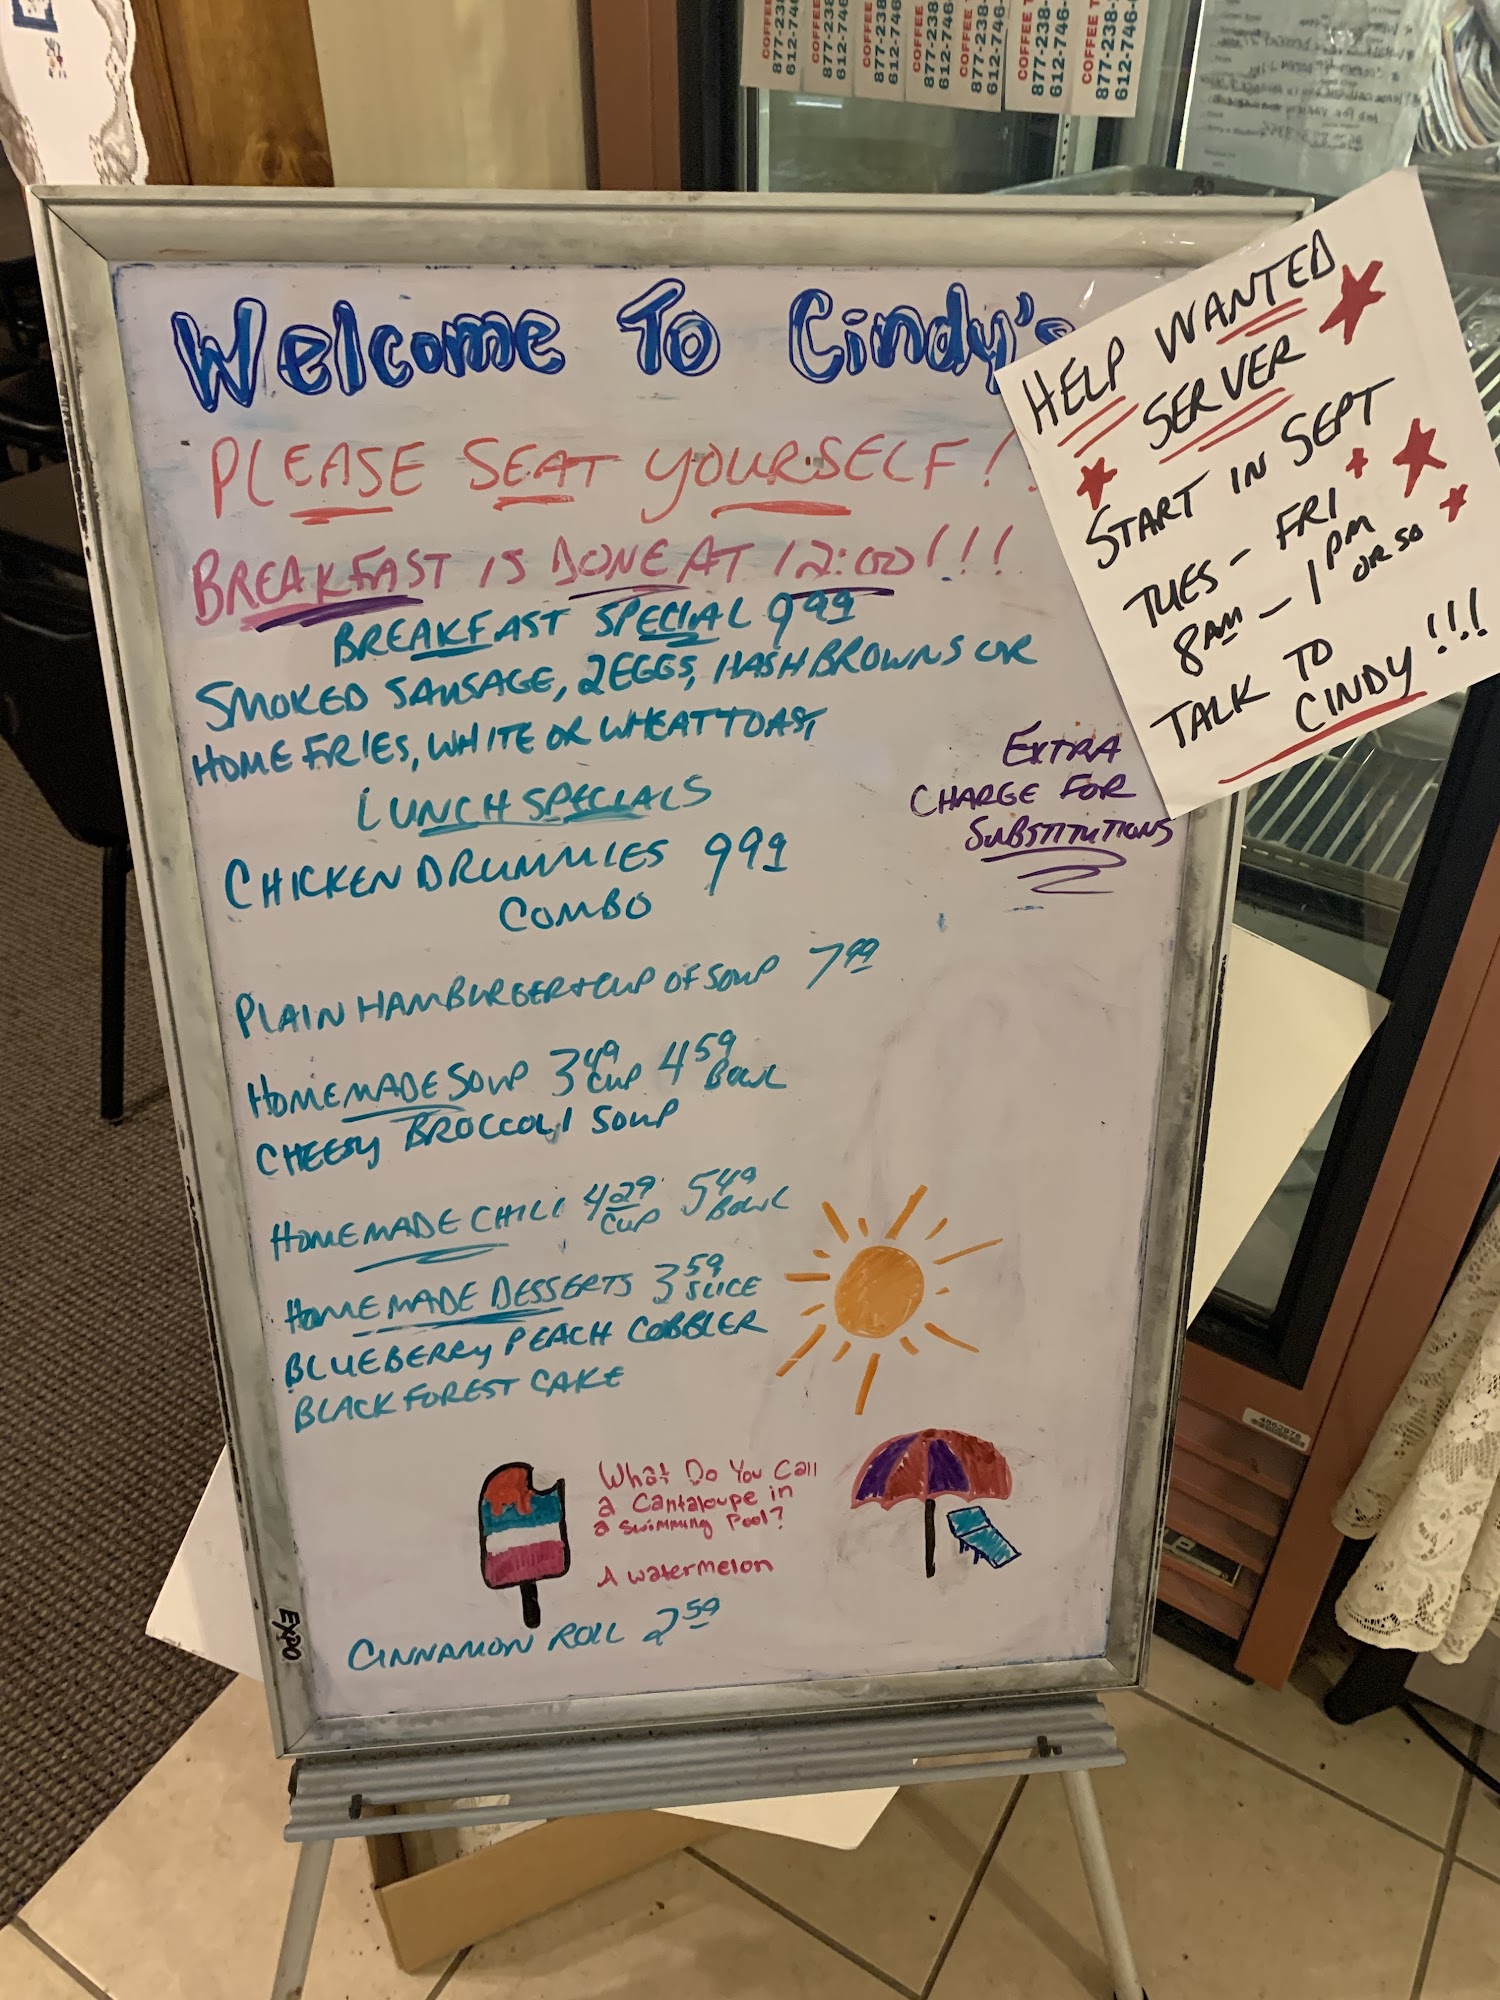 COFFEE
877-238-
612-746-
Welcome To Cindy's
PLEASE SEAT YOURSELF!
BREAKFAST IS DONE AT 12:00!!!
BREAKFAST SPECIAL 999
SMOKED SAUSAGE, 2 EGGS, HASHBROWNS OR
HOME FRIES, WHITE OR WHEAT TOAST
LUNCH SPECIALS
CHICKEN DRUMMIES 999
COMBO
PLAIN HAMBURGER + CUP OF SOUP 799
HOMEMADE SOUP 349 CUP 459 BOWL
CHEESY BROCCOLI SOUP
HOMEMADE CHILI 429 CUP 549 BOWL
HOMEMADE DESSERTS 359 SLICE
BLUEBERRY PEACH COBBLER
BLACK FOREST CAKE
What Do You Call
a Cantaloupe in
a Swimming Pool?
A watermelon
CINNAMON ROLL 259
EXPO
EXTRA
CHARGE FOR
SUBSTITUTIONS
HELP WANTED
SERVER
START IN SEPT
TUES - FRI
8AM - 1PM OR SO
TALK TO
CINDY!!!